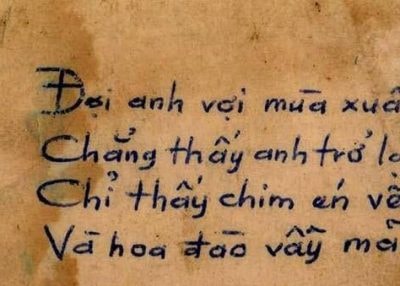 Đợi anh vợi mùa xuâ
Chẳng thấy anh trở lạ
Chỉ thấy chim én về
Và hoa đào vẫy mà